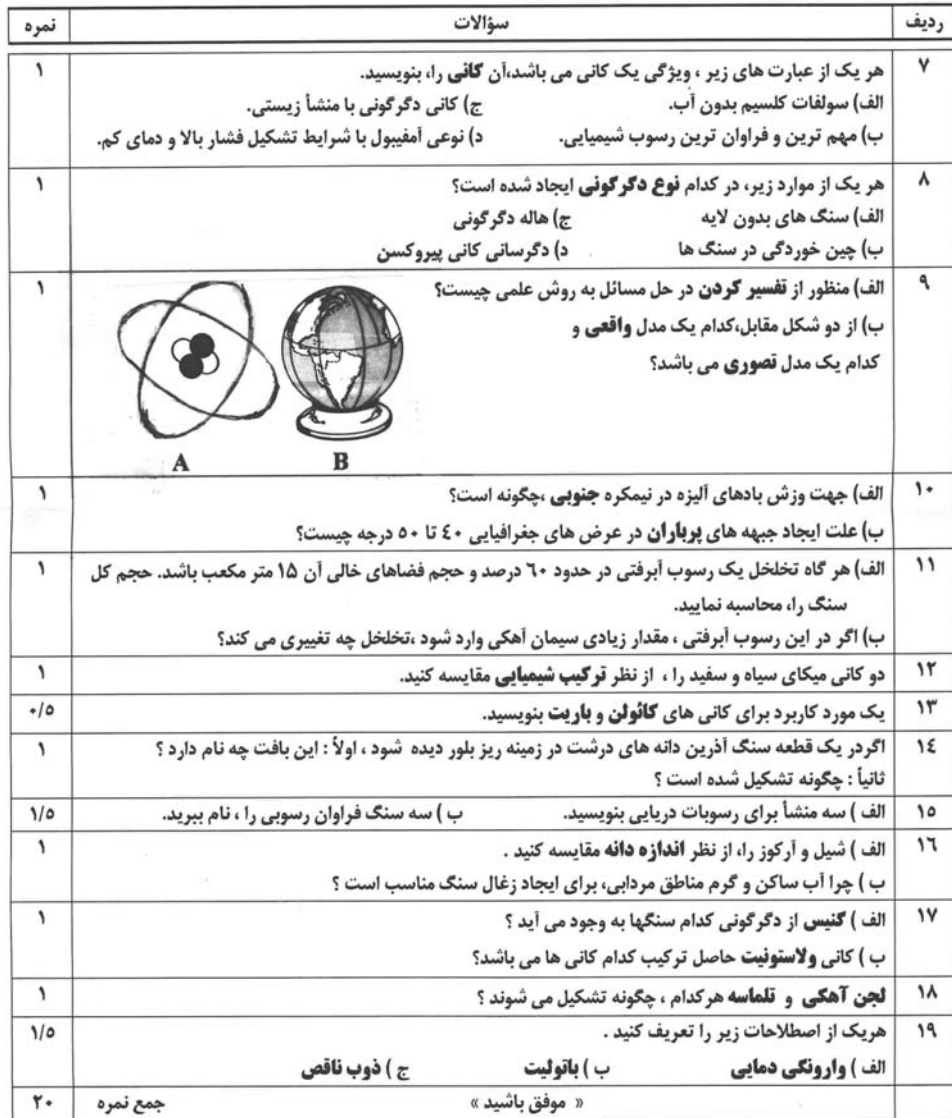 ردیف سؤالات نمره
۷ هر یک از عبارت های زیر ، ویژگی یک کانی می باشد،آن کانی را، بنویسید. ۱
الف) سولفات کلسیم بدون آب. ج) کانی دگرگونی با منشأ زیستی.
ب) مهم ترین و فراوان ترین رسوب شیمیایی. د) نوعی آمفیبول با شرایط تشکیل فشار بالا و دمای کم.
۸ هر یک از موارد زیر، در کدام نوع دگرگونی ایجاد شده است؟ ۱
الف) سنگ های بدون لایه ج) هاله دگرگونی
ب) چین خوردگی در سنگ ها د) دگرسانی کانی پیروکسن
۹ الف) منظور از تفسیر کردن در حل مسائل به روش علمی چیست؟ ۱
ب) از دو شکل مقابل،کدام یک مدل واقعی و
کدام یک مدل تصوری می باشد؟
A B
۱۰ الف) جهت وزش بادهای آلیزه در نیمکره جنوبی ،چگونه است؟ ۱
ب) علت ایجاد جبهه های پرباران در عرض های جغرافیایی ۴۰ تا ۵۰ درجه چیست؟
۱۱ الف) هر گاه تخلخل یک رسوب آبرفتی در حدود ۶۰ درصد و حجم فضاهای خالی آن ۱۵ متر مکعب باشد. حجم کل ۱
سنگ را، محاسبه نمایید.
ب) اگر در این رسوب آبرفتی ، مقدار زیادی سیمان آهکی وارد شود ،تخلخل چه تغییری می کند؟
۱۲ دو کانی میکای سیاه و سفید را ، از نظر ترکیب شیمیایی مقایسه کنید. ۱
۱۳ یک مورد کاربرد برای کانی های کائولن و باریت بنویسید. ۰/۵
۱۴ اگردر یک قطعه سنگ آذرین دانه های درشت در زمینه ریز بلور دیده شود ، اولاً : این بافت چه نام دارد ؟ ۱
ثانیاً : چگونه تشکیل شده است ؟
۱۵ الف ) سه منشأ برای رسوبات دریایی بنویسید. ب ) سه سنگ فراوان رسوبی را ، نام ببرید. ۱/۵
۱۶ الف ) شیل و آرکوز را، از نظر اندازه دانه مقایسه کنید . ۱
ب ) چرا آب ساکن و گرم مناطق مردابی، برای ایجاد زغال سنگ مناسب است ؟
۱۷ الف ) گنیس از دگرگونی کدام سنگها به وجود می آید ؟ ۱
ب ) کانی ولاستونیت حاصل ترکیب کدام کانی ها می باشد؟
۱۸ لجن آهکی و تلماسه هرکدام ، چگونه تشکیل می شوند ؟ ۱
۱۹ هریک از اصطلاحات زیر را تعریف کنید . ۱/۵
الف ) وارونگی دمایی ب ) باتولیت ج ) ذوب ناقص
« موفق باشید » جمع نمره ۲۰